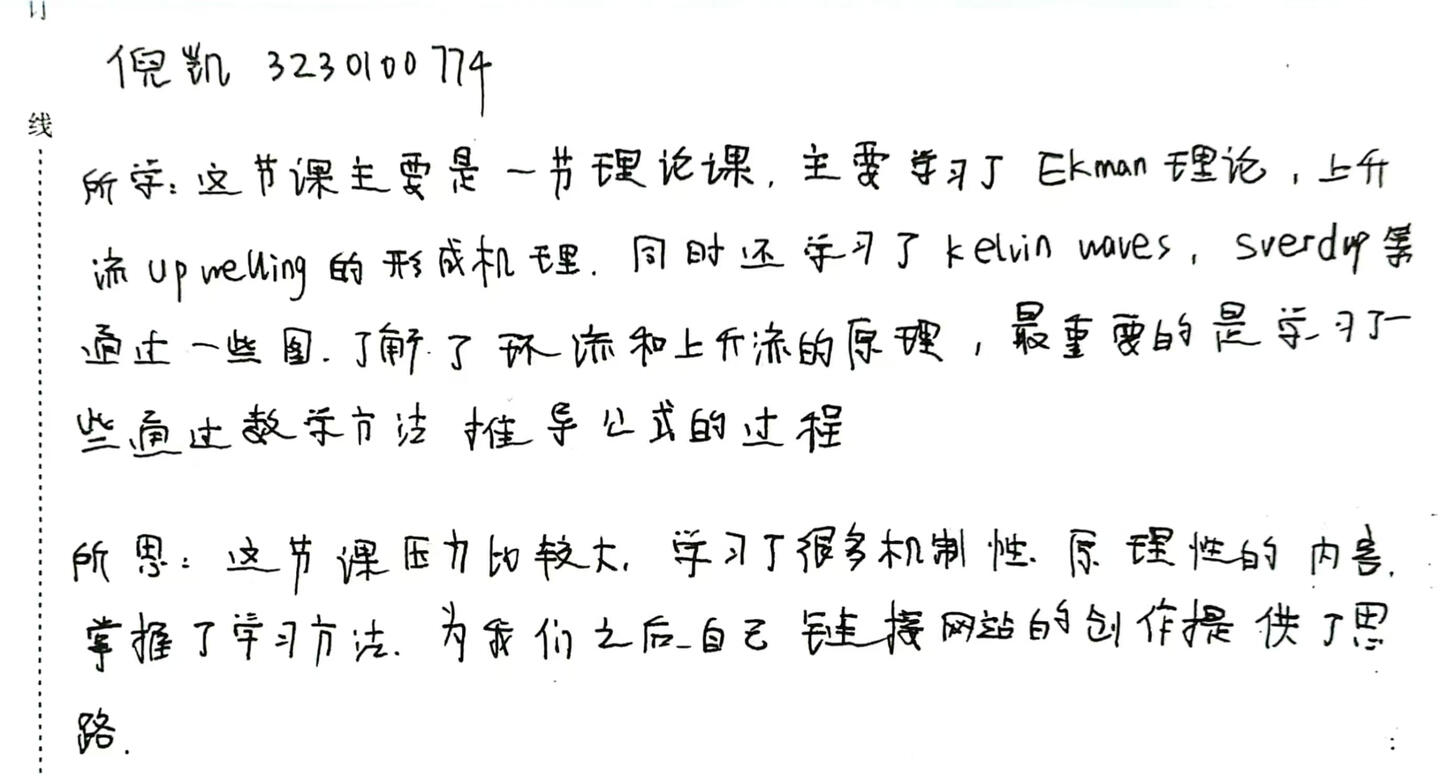 订
倪凯 3230100774
线
所学：这节课主要是一节理论课，主要学习了 Ekman 理论，上升
流 upwelling 的形成机理. 同时还学习了 kelvin waves，sverdup 等
通过一些图. 了解了环流和上升流的原理，最重要的是学习了一
些通过数学方法推导公式的过程
所思：这节课压力比较大，学习了很多机制性. 原理性的内容.
掌握了学习方法. 为我们之后自己链接网站的创作提供了思
路.